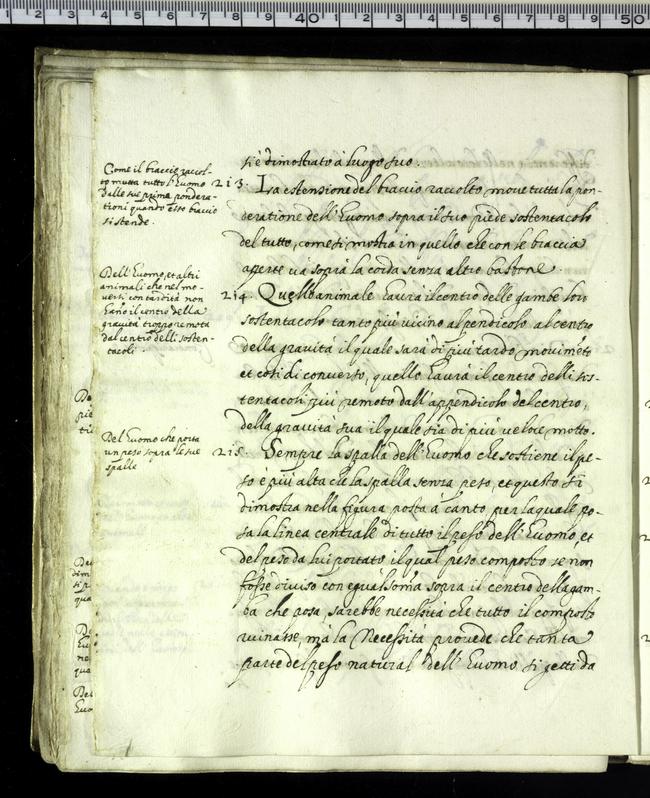 si è dimostrato à luogo suo.
Come il braccio raccol-
to mutta tutto l'Euomo
dalle sue prima pondera-
tioni quando esso braccio
si stende.
213. La estensione del braccio raccolto move tutta la pon-
deratione dell'Euomo sopra il suo piede sostentacolo
del tutto, come si mostra in quello che con le braccia
aperte uà soprà la corda senza altro bastone
Dell'Euomo, et altri
animali che nel mo-
versi con tardità non
Eano il centro della
gravità troppo remota
dal centro delli sosten-
tacoli.
214. Quello animale Eaura il centro delle gambe suo
sostentacolo tanto più vicino al pendicolo al centro
della gravità il quale sarà di più tardo movim̃eto
et così di converso, quello Eaurà il centro delli sos-
tentacoli più remoto dall'appendicolo del centro,
della gravità sua il quale sia di più velore motto.
Del Euomo che porta
un peso sopra le sue
spalle
215. Sempre la spalla dell'Euomo che sostiene il pe-
so è più alta che la spalla senza peso, et questo si
dimostra nella figura posta à canto per la quale po-
sa la linea centrale di tutto il peso dell'Euomo et
del peso da lui portato il qual peso composto se non
fosse diviso con egual soma sopra il centro della gam-
ba che posa, sarebbe necessità che tutto il composto
ruinasse, mà la Necessità provede che tanta
parte del peso natural dell'Euomo si getti da